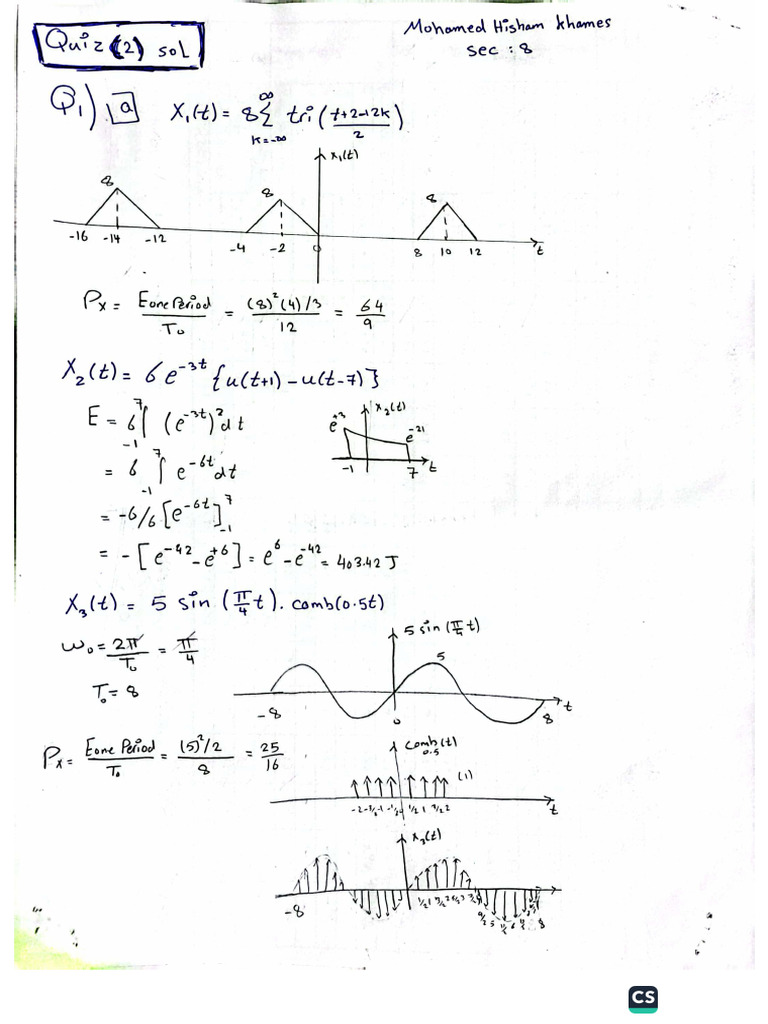 Quiz (2) sol
Mohamed Hisham Khames
sec : 8
Q1) a X₁(t) = 8 Σ tri(t+2-12k / 2)
∞
k=-∞
x₁(t)
8 8 8
-16 -14 -12 -4 -2 0 8 10 12 t
Px = E one Period / T₀ = (8)²(4)/3 / 12 = 64/9
X₂(t) = 6 e^-3t {u(t+1) - u(t-7)}
E = 6 ∫₋₁⁷ (e^-3t)² dt
= 6 ∫₋₁⁷ e^-6t dt
= -6/6 [e^-6t]₋₁⁷
= -[e^-42 - e^+6] = e^6 - e^-42 = 403.42 J
x₂(t)
e^+3 e^-21
-1 7 t
X₃(t) = 5 sin(π/4 t) . comb(0.5t)
ω₀ = 2π/T₀ = π/4
T₀ = 8
5 sin(π/4 t)
5
-8 0 8 t
Px = E one Period / T₀ = (5)²/2 / 8 = 25/16
comb(t)
0.5
(1)
-2 -3/2 -1 -1/2 1/2 1 3/2 2 t
x₃(t)
-8 1/2 1 3/2 2 5/2 3 7/2
9/2 5 11/2 6 8
CS